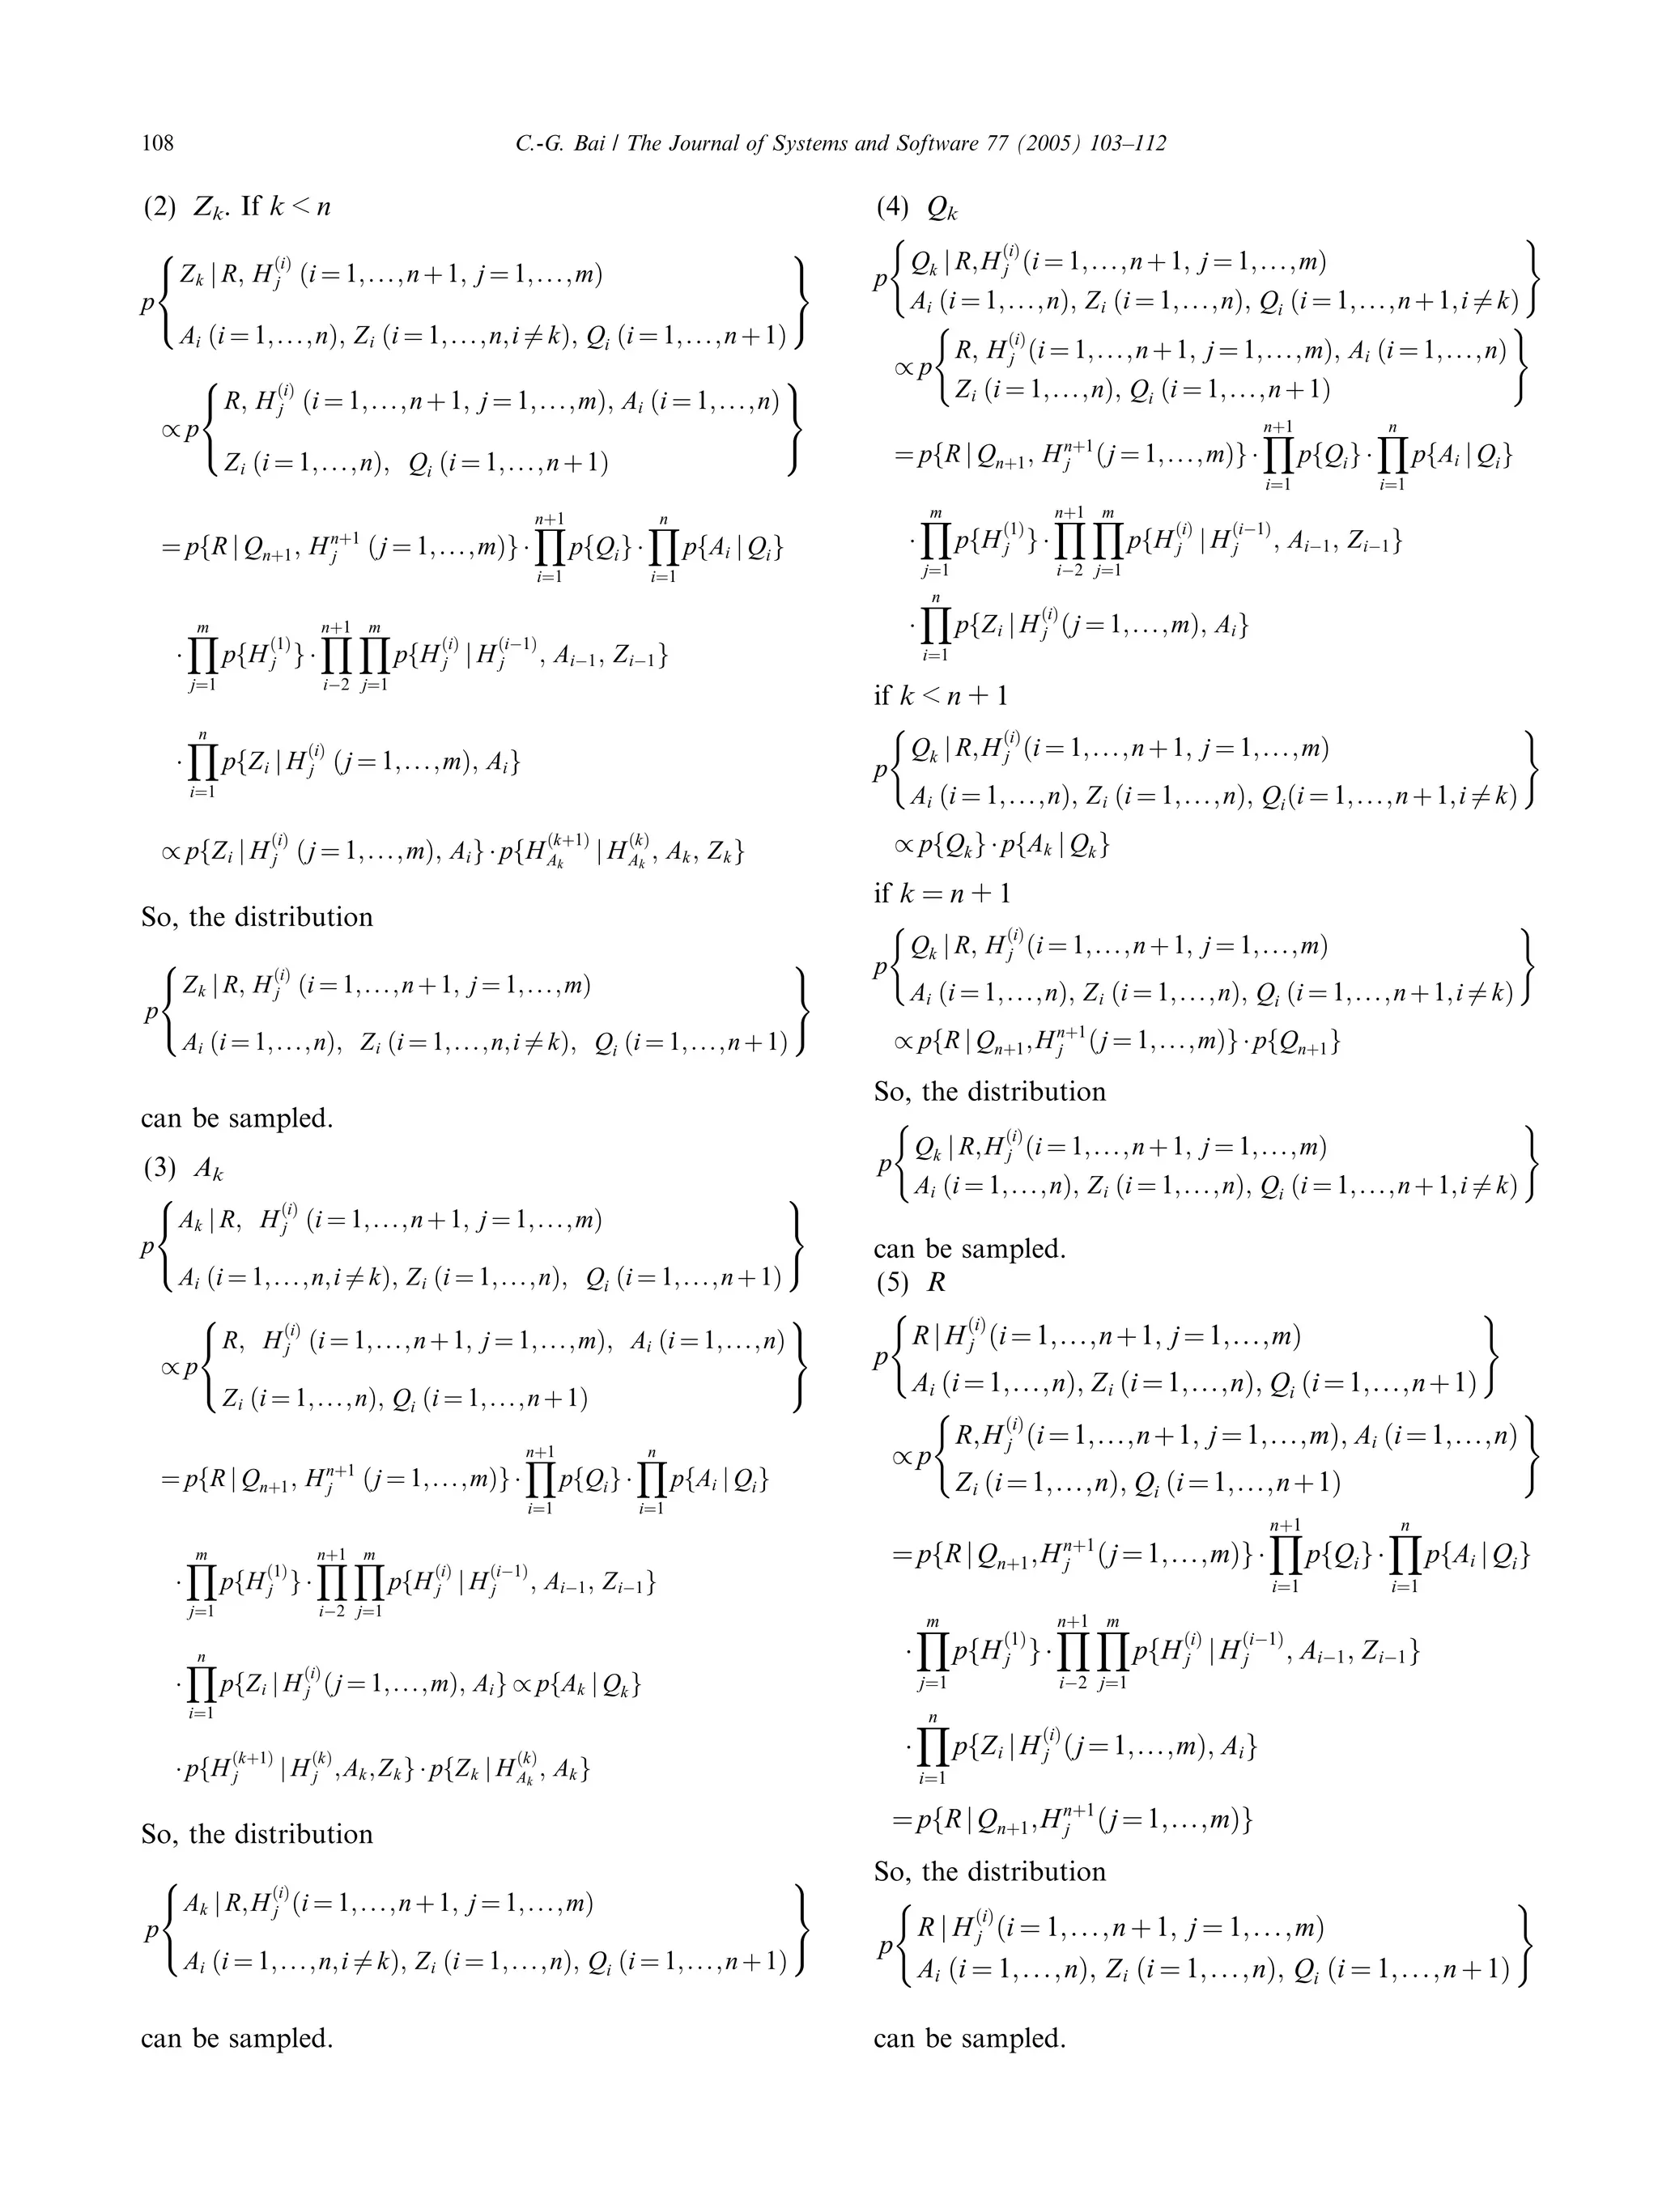 108
C.-G. Bai / The Journal of Systems and Software 77 (2005) 103–112
(2) Z_k. If k < n
p{ Z_k | R, H_j^{(i)} (i=1,...,n+1, j=1,...,m)
A_i (i=1,...,n), Z_i (i=1,...,n,i≠k), Q_i (i=1,...,n+1) }
∝p{ R, H_j^{(i)} (i=1,...,n+1, j=1,...,m), A_i (i=1,...,n)
Z_i (i=1,...,n), Q_i (i=1,...,n+1) }
=p{R | Q_{n+1}, H_j^{n+1} (j=1,...,m)} · ∏_{i=1}^{n+1} p{Q_i} · ∏_{i=1}^{n} p{A_i | Q_i}
· ∏_{j=1}^{m} p{H_j^{(1)}} · ∏_{i−2}^{n+1} ∏_{j=1}^{m} p{H_j^{(i)} | H_j^{(i−1)}, A_{i−1}, Z_{i−1}}
· ∏_{i=1}^{n} p{Z_i | H_j^{(i)} (j=1,...,m), A_i}
∝p{Z_i | H_j^{(i)} (j=1,...,m), A_i} · p{H_{A_k}^{(k+1)} | H_{A_k}^{(k)}, A_k, Z_k}
So, the distribution
p{ Z_k | R, H_j^{(i)} (i=1,...,n+1, j=1,...,m)
A_i (i=1,...,n), Z_i (i=1,...,n,i≠k), Q_i (i=1,...,n+1) }
can be sampled.
(3) A_k
p{ A_k | R, H_j^{(i)} (i=1,...,n+1, j=1,...,m)
A_i (i=1,...,n,i≠k), Z_i (i=1,...,n), Q_i (i=1,...,n+1) }
∝p{ R, H_j^{(i)} (i=1,...,n+1, j=1,...,m), A_i (i=1,...,n)
Z_i (i=1,...,n), Q_i (i=1,...,n+1) }
=p{R | Q_{n+1}, H_j^{n+1} (j=1,...,m)} · ∏_{i=1}^{n+1} p{Q_i} · ∏_{i=1}^{n} p{A_i | Q_i}
· ∏_{j=1}^{m} p{H_j^{(1)}} · ∏_{i−2}^{n+1} ∏_{j=1}^{m} p{H_j^{(i)} | H_j^{(i−1)}, A_{i−1}, Z_{i−1}}
· ∏_{i=1}^{n} p{Z_i | H_j^{(i)} (j=1,...,m), A_i} ∝p{A_k | Q_k}
· p{H_j^{(k+1)} | H_j^{(k)}, A_k, Z_k} · p{Z_k | H_{A_k}^{(k)}, A_k}
So, the distribution
p{ A_k | R,H_j^{(i)} (i=1,...,n+1, j=1,...,m)
A_i (i=1,...,n,i≠k), Z_i (i=1,...,n), Q_i (i=1,...,n+1) }
can be sampled.
(4) Q_k
p{ Q_k | R,H_j^{(i)} (i=1,...,n+1, j=1,...,m)
A_i (i=1,...,n), Z_i (i=1,...,n), Q_i (i=1,...,n+1,i≠k) }
∝p{ R, H_j^{(i)} (i=1,...,n+1, j=1,...,m), A_i (i=1,...,n)
Z_i (i=1,...,n), Q_i (i=1,...,n+1) }
=p{R | Q_{n+1}, H_j^{n+1} (j=1,...,m)} · ∏_{i=1}^{n+1} p{Q_i} · ∏_{i=1}^{n} p{A_i | Q_i}
· ∏_{j=1}^{m} p{H_j^{(1)}} · ∏_{i−2}^{n+1} ∏_{j=1}^{m} p{H_j^{(i)} | H_j^{(i−1)}, A_{i−1}, Z_{i−1}}
· ∏_{i=1}^{n} p{Z_i | H_j^{(i)} (j=1,...,m), A_i}
if k < n + 1
p{ Q_k | R,H_j^{(i)} (i=1,...,n+1, j=1,...,m)
A_i (i=1,...,n), Z_i (i=1,...,n), Q_i(i=1,...,n+1,i≠k) }
∝p{Q_k} · p{A_k | Q_k}
if k = n + 1
p{ Q_k | R, H_j^{(i)} (i=1,...,n+1, j=1,...,m)
A_i (i=1,...,n), Z_i (i=1,...,n), Q_i (i=1,...,n+1,i≠k) }
∝p{R | Q_{n+1},H_j^{n+1} (j=1,...,m)} · p{Q_{n+1}}
So, the distribution
p{ Q_k | R,H_j^{(i)} (i=1,...,n+1, j=1,...,m)
A_i (i=1,...,n), Z_i (i=1,...,n), Q_i (i=1,...,n+1,i≠k) }
can be sampled.
(5) R
p{ R | H_j^{(i)} (i=1,...,n+1, j=1,...,m)
A_i (i=1,...,n), Z_i (i=1,...,n), Q_i (i=1,...,n+1) }
∝p{ R,H_j^{(i)} (i=1,...,n+1, j=1,...,m), A_i (i=1,...,n)
Z_i (i=1,...,n), Q_i (i=1,...,n+1) }
=p{R | Q_{n+1},H_j^{n+1} (j=1,...,m)} · ∏_{i=1}^{n+1} p{Q_i} · ∏_{i=1}^{n} p{A_i | Q_i}
· ∏_{j=1}^{m} p{H_j^{(1)}} · ∏_{i−2}^{n+1} ∏_{j=1}^{m} p{H_j^{(i)} | H_j^{(i−1)}, A_{i−1}, Z_{i−1}}
· ∏_{i=1}^{n} p{Z_i | H_j^{(i)} (j=1,...,m), A_i}
=p{R | Q_{n+1},H_j^{n+1} (j=1,...,m)}
So, the distribution
p{ R | H_j^{(i)} (i=1,...,n+1, j=1,...,m)
A_i (i=1,...,n), Z_i (i=1,...,n), Q_i (i=1,...,n+1) }
can be sampled.